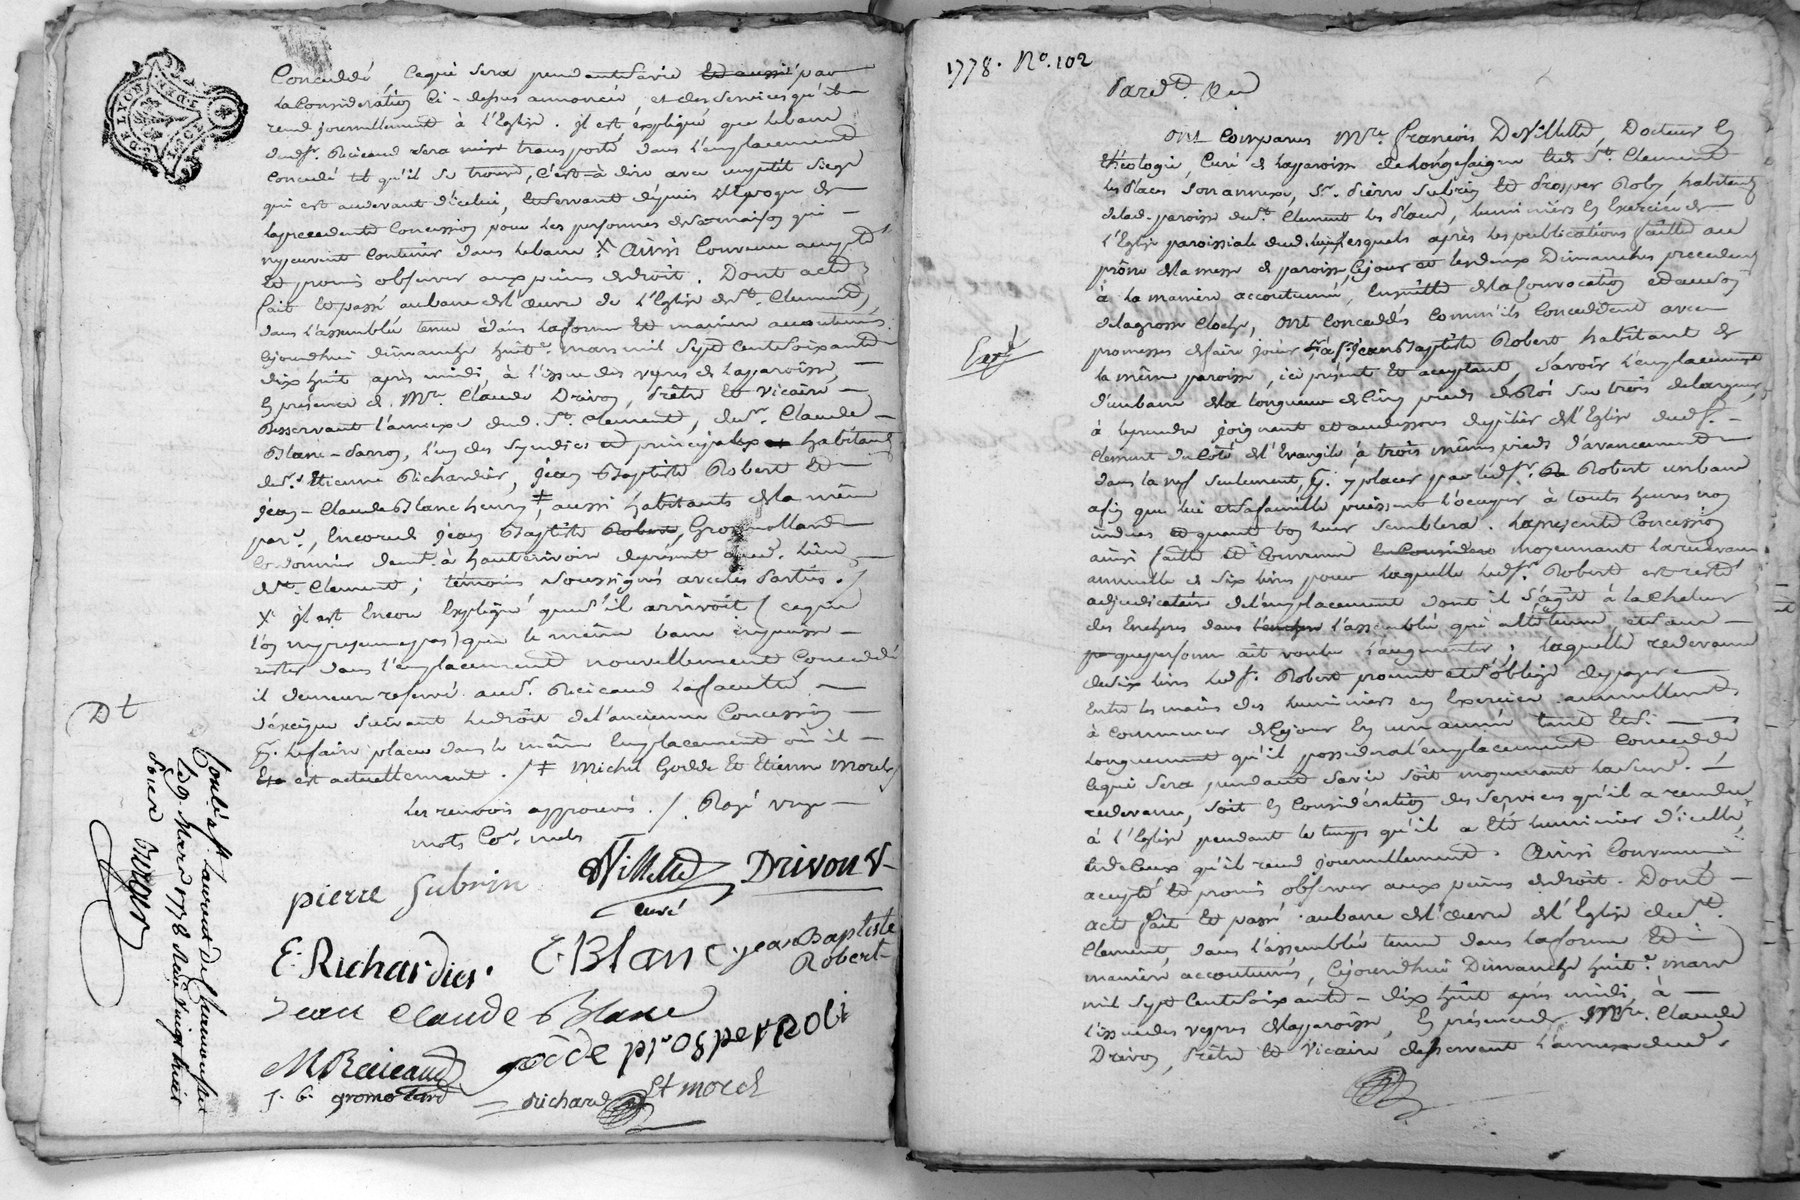 Concédé ce qui sera pendant sa vie et aussi par
la considération ci-dessus annoncée, et des services qu'il
rend journellement à l'Eglise. il est expliqué que le banc
dud. sr. Reicaud sera mis et transporté dans l'emplacement
concédé tel qu'il se trouve, c'est-à dire avec un petit siege
qui est au devant d'icelui, et servant depuis l'époque de
la précédente Concession pour les personnes de sa maison qui
ne peuvent contenir dans le banc X Ainsi Convenu accepté
et promis observer aux peines de droit. Dont acte
fait et passé au banc de l'oeuvre de l'Eglise de St. Clement,
dans l'assemblée tenue dans la forme et maniere accoutumée
cejourdhui dimanche huite. mars mil sept cent soixante
dix huit après midi, à l'issue des vepres de la paroisse,
en présence de Mre. Claude Drivon, Prêtre et vicaire
desservant l'annexe dud. St. Clement, de sr. Claude
Blanc-Sarron, l'un des syndics et principaux habitans
de sr. Etienne Richardier, jean Baptiste Robert et
jean-Claude Blanc henry, ‡ aussi habitants de la même
par., encore de jean Baptiste Robert, Gromollard
cordonnier demt. à hauterivoire de présent aud. lieu
de St. Clement; témoins soussignés avec les parties. /
X il est encore expliqué que s'il arrivoit ( ce que
l'on ne presume pas) que le même banc ne puisse
rester dans l'emplacement nouvellement Concédé
il demeure reservé aud. sr. Reicaud la faculté
d'exciper suivant le droit de l'ancienne Concession
pr. le faire placer dans le même emplacement où il
est actuellement. / ‡ Michel Godde et Etienne morel /
les renvois approuvés. / Rayé
mots Comme nuls
pierre Subrin DeVillette curé Drivon V.
E. Richardier. C. Blanc jean Baptiste
Robert
Jean Claude Blanc
M Reicaud godde prosper Robi
J. B. gromolard Richard Et morel
Dt
Conlé à St. Laurent de Chamousset
le 9. Mars 1778 Reçu vingt huit
sous
1778. No. 102
Pardt. &c
Ont comparus Mre. françois DeVillette, Docteur en
théologie, Curé de la paroisse de Longessaigne et de St. Clement
les Places son annexe, Sr. Pierre Subrin et Prosper Roby habitants
de lad. paroisse de St. Clement les Places, luminiers en Exercice de
l'Eglise paroissiale dud. lieu, lesquels après les publications faites au
prône de la messe de paroisse, cejour et les deux Dimanches precedents
à la maniere accoutumée, Ensuitte de la Convocation et au son
de la grosse Cloche, ont concédés comm'ils concedent avec
promesses de faire jouir à sr. jean Baptiste Robert habitant de
la même paroisse, ici présent et acceptant, savoir l'emplacement
d'un banc de la longueur de Cinq pieds de Roi sur trois de largeur,
à le prendre joignant et au dessous du pilier de l'Eglise dud. St.
Clement du Coté de l'Evangile, à trois mêmes pieds d'avancement
dans la nef seulement, pr. y placer par led. sr. Robert un banc
afin que lui et sa famille puissent l'occuper à toutes heures non
indues et quant bon leur semblera. La presente Concession
ainsi faitte et Convenue moyennant la redevance
annuelle de six livres pour laquelle led. sr. Robert est resté
adjudicataire de l'emplacement dont il s'agit à la Chaleur
des Encheres dans l'assemblée qui a été tenue, et sans
que personne ait voulu l'augmenter, laquelle redevance
de six livres led. sr. Robert promet et s'oblige de payer
Entre les mains des luminiers en Exercice annuellement
à commencer de cejour En un an et tant et si
longuement qu'il possedera l'emplacement concédé
ce qui sera pendant sa vie soit moyennant lad.
redevance, soit en considération des services qu'il a rendu
à l'Eglise pendant le temps qu'il a été luminier d'icelle,
et de Ceux qu'il rend journellement. Ainsi Convenu
accepté et promis observer aux peines de droit. Dont
acte fait et passé au banc de l'oeuvre de l'Eglise de St.
Clement, dans l'assemblée tenue dans la forme et
maniere accoutumée, Cejourdhui Dimanche huite. mars
mil sept Cent soixante-dix huit après midi, à
l'issue des vepres de la paroisse, En présence de Mre. Claude
Drivon, Prêtre et Vicaire desservant l'annexe dud.